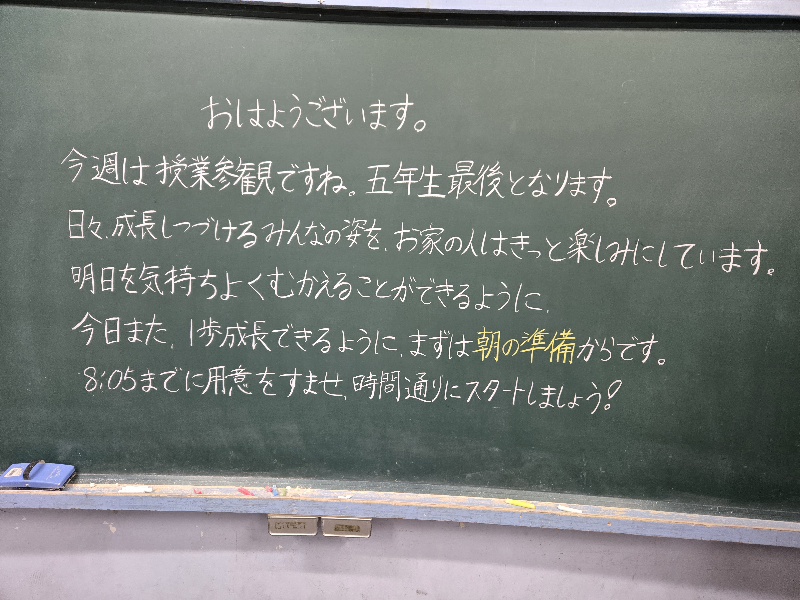 おはようございます。
今週は授業参観ですね。五年生最後となります。
日々、成長しつづけるみんなの姿を、お家の人はきっと楽しみにしています。
明日を気持ちよくむかえることができるように、
今日また、1歩成長できるように、まずは朝の準備からです。
8:05までに用意をすませ、時間通りにスタートしましょう!